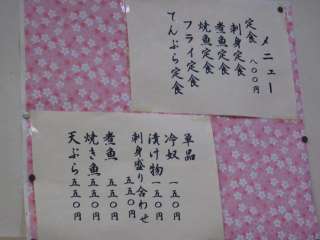 メニュー
定食 八〇〇円
刺身定食
煮魚定食
焼魚定食
フライ定食
てんぷら定食
単品
冷奴 一五〇円
漬け物 一五〇円
刺身盛り合わせ 五五〇円
煮魚 五五〇円
焼き魚 五五〇円
天ぷら 五五〇円